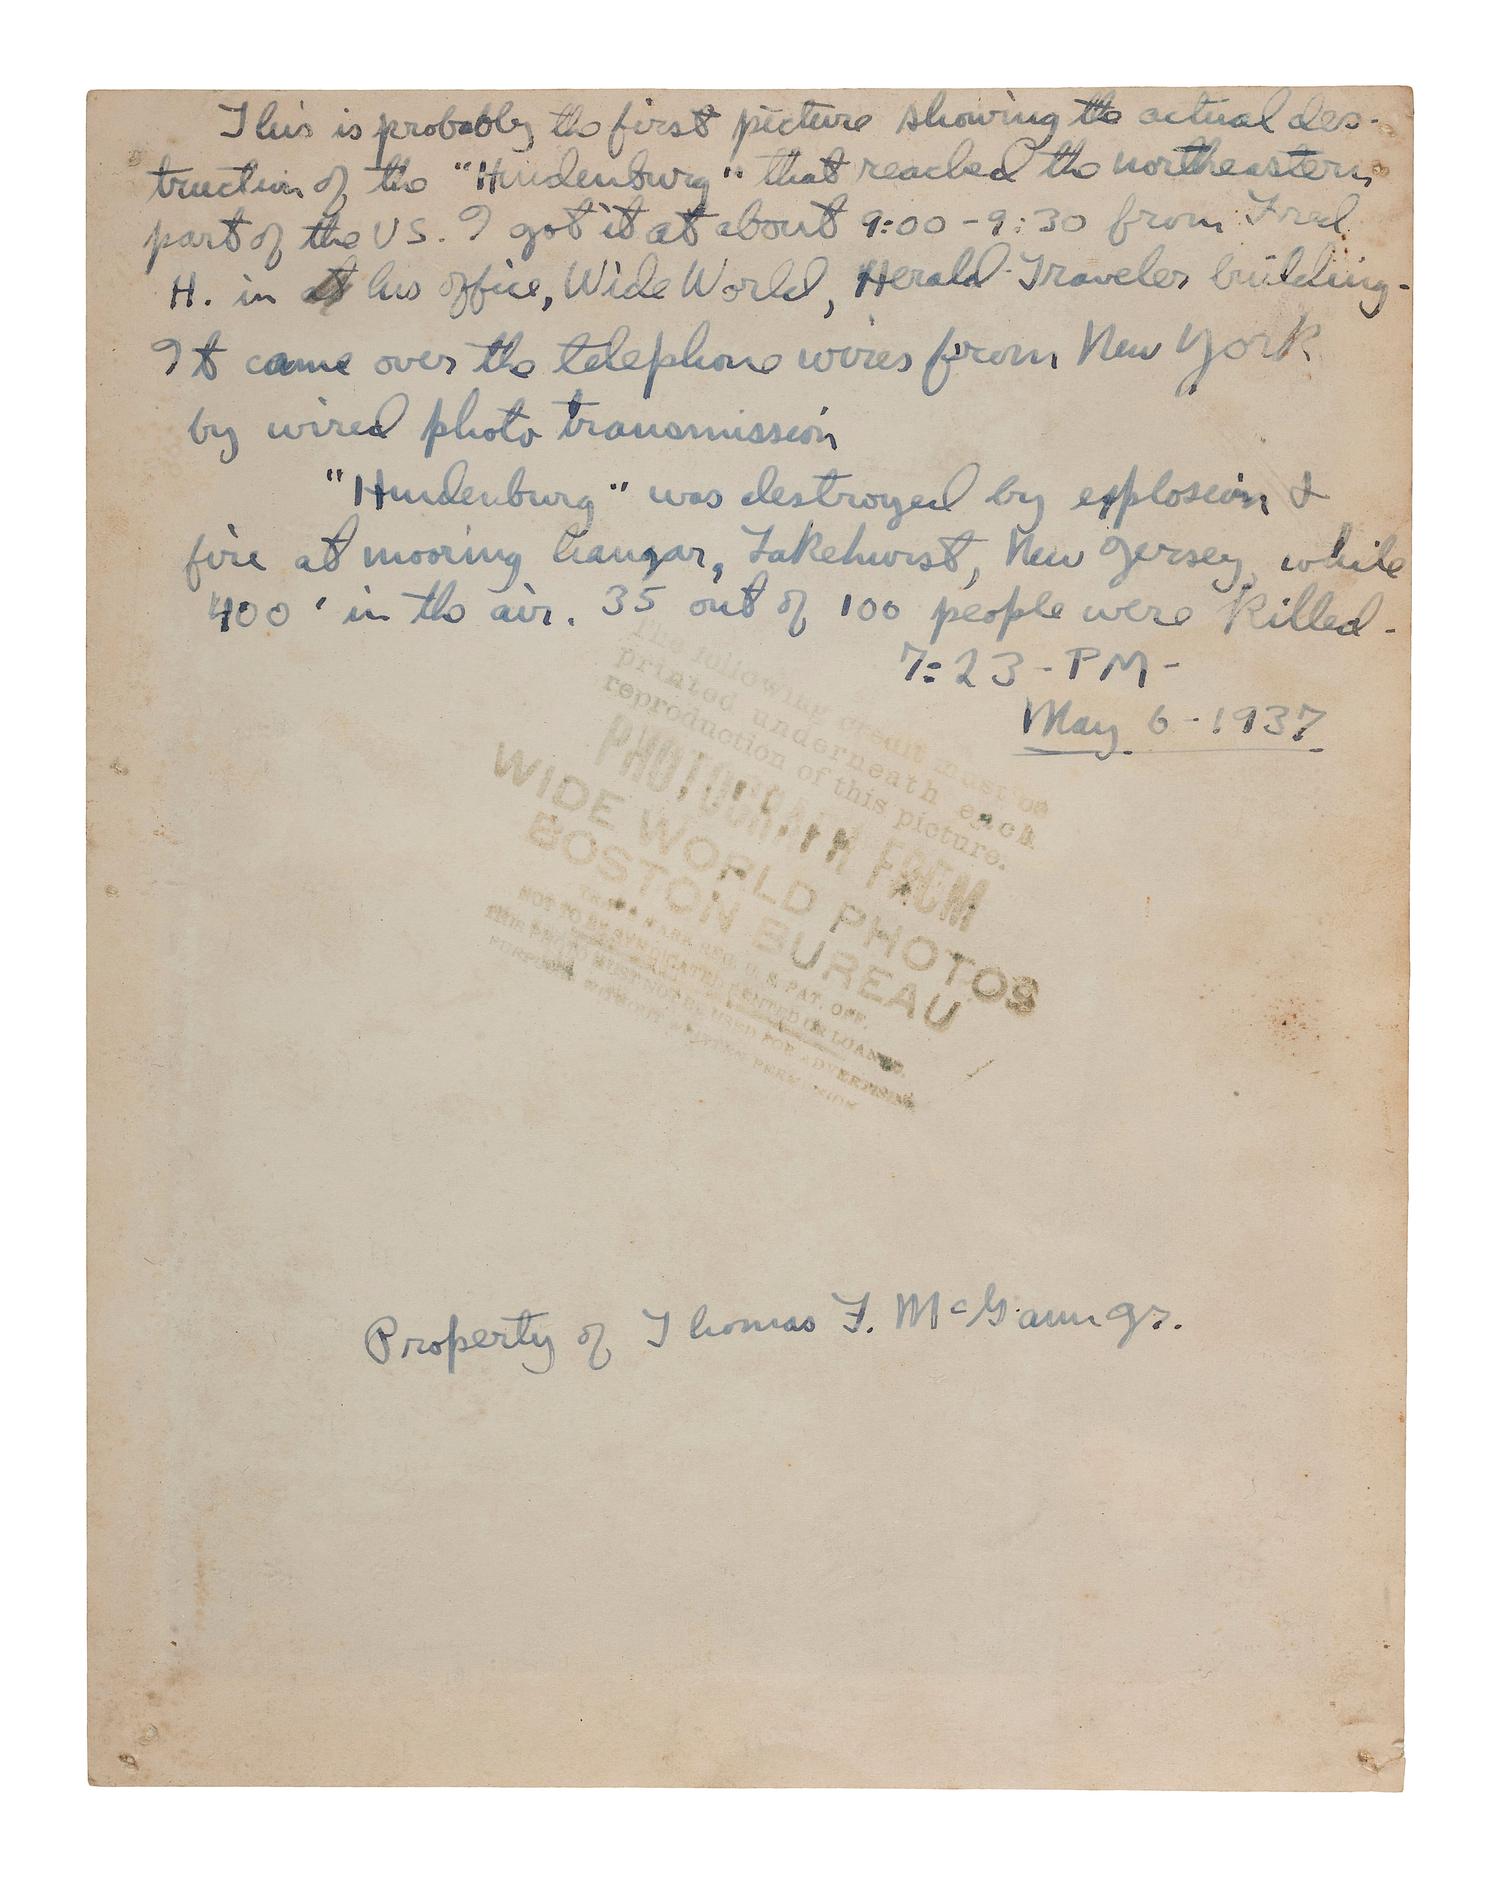 This is probably the first picture showing the actual des-
truction of the "Hindenburg" that reached the northeastern
part of the US. I got it at about 9:00-9:30 from Fred
H. in his office, Wide World, Herald-Traveler building-
It came over the telephone wires from New York
by wired photo transmission
"Hindenburg" was destroyed by explosion &
fire at mooring hangar, Lakehurst, New Jersey, while
400' in the air. 35 out of 100 people were killed-
7:23-PM-
May 6-1937
The following credit must be
printed underneath each
reproduction of this picture.
PHOTOGRAPH FROM
WIDE WORLD PHOTOS
BOSTON BUREAU
TRADE MARK REG. U. S. PAT. OFF.
NOT TO BE SYNDICATED RENTED OR LOANED.
THIS PHOTO MUST NOT BE USED FOR ADVERTISING
PURPOSES WITHOUT WRITTEN PERMISSION
Property of Thomas F. McGann Jr.